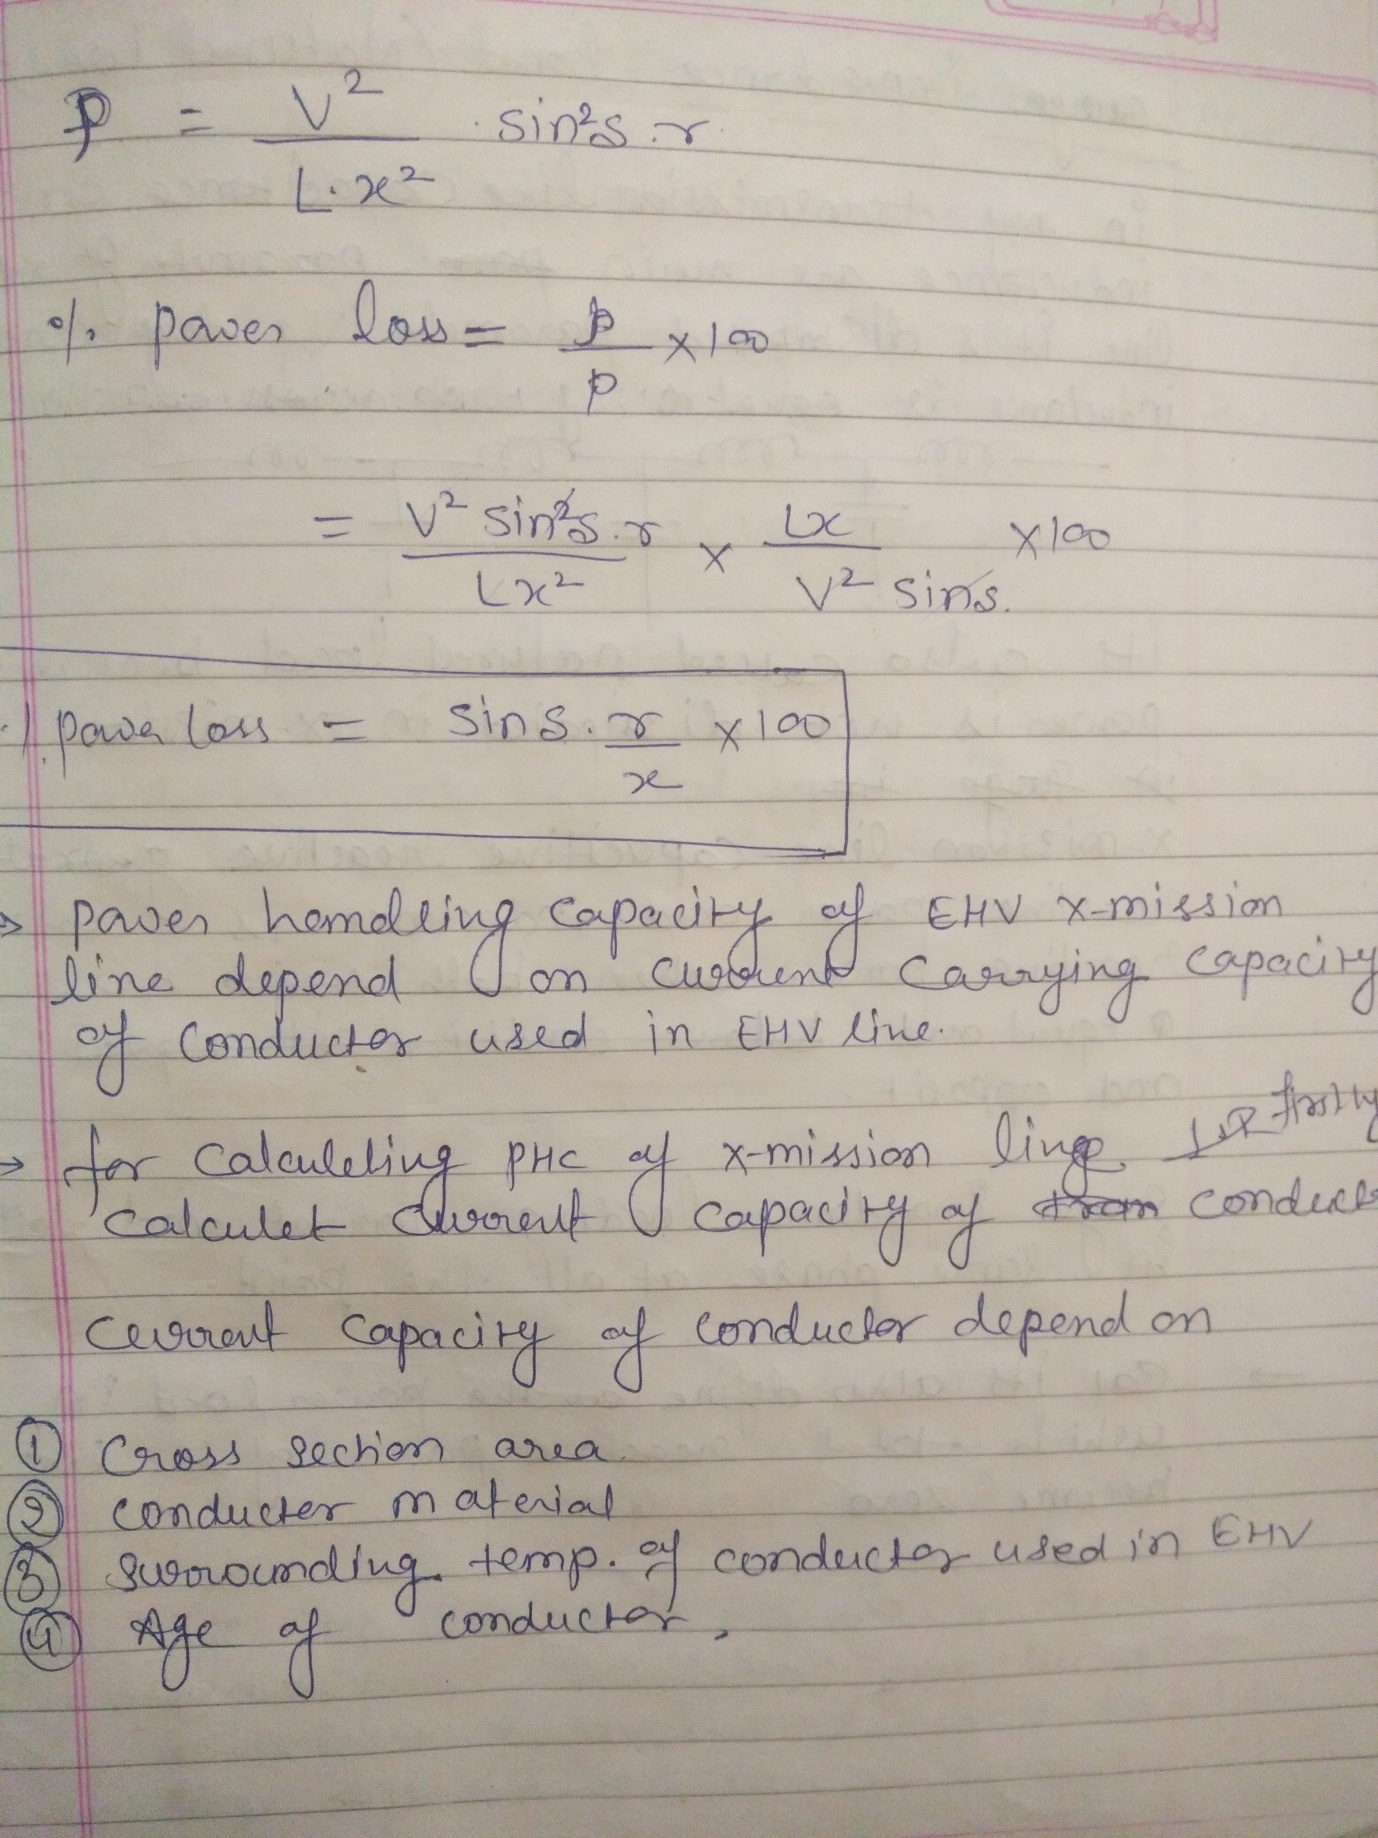 p = V² / L·x² · sin²S·r
% power loss = p / P × 100
= V² sin²S·r / Lx² × Lx / V² sinS. × 100
% power loss = sin S. r / x × 100
→ power handling capacity of EHV x-mission
line depend on current carrying capacity
of conductor used in EHV line.
→ for calculeting PHC of x-mission line firstly
calculet current capacity of conduct
current capacity of conductor depend on
① Cross section area
② conducter material
③ surrounding temp. of conductor used in EHV
④ Age of conductor,